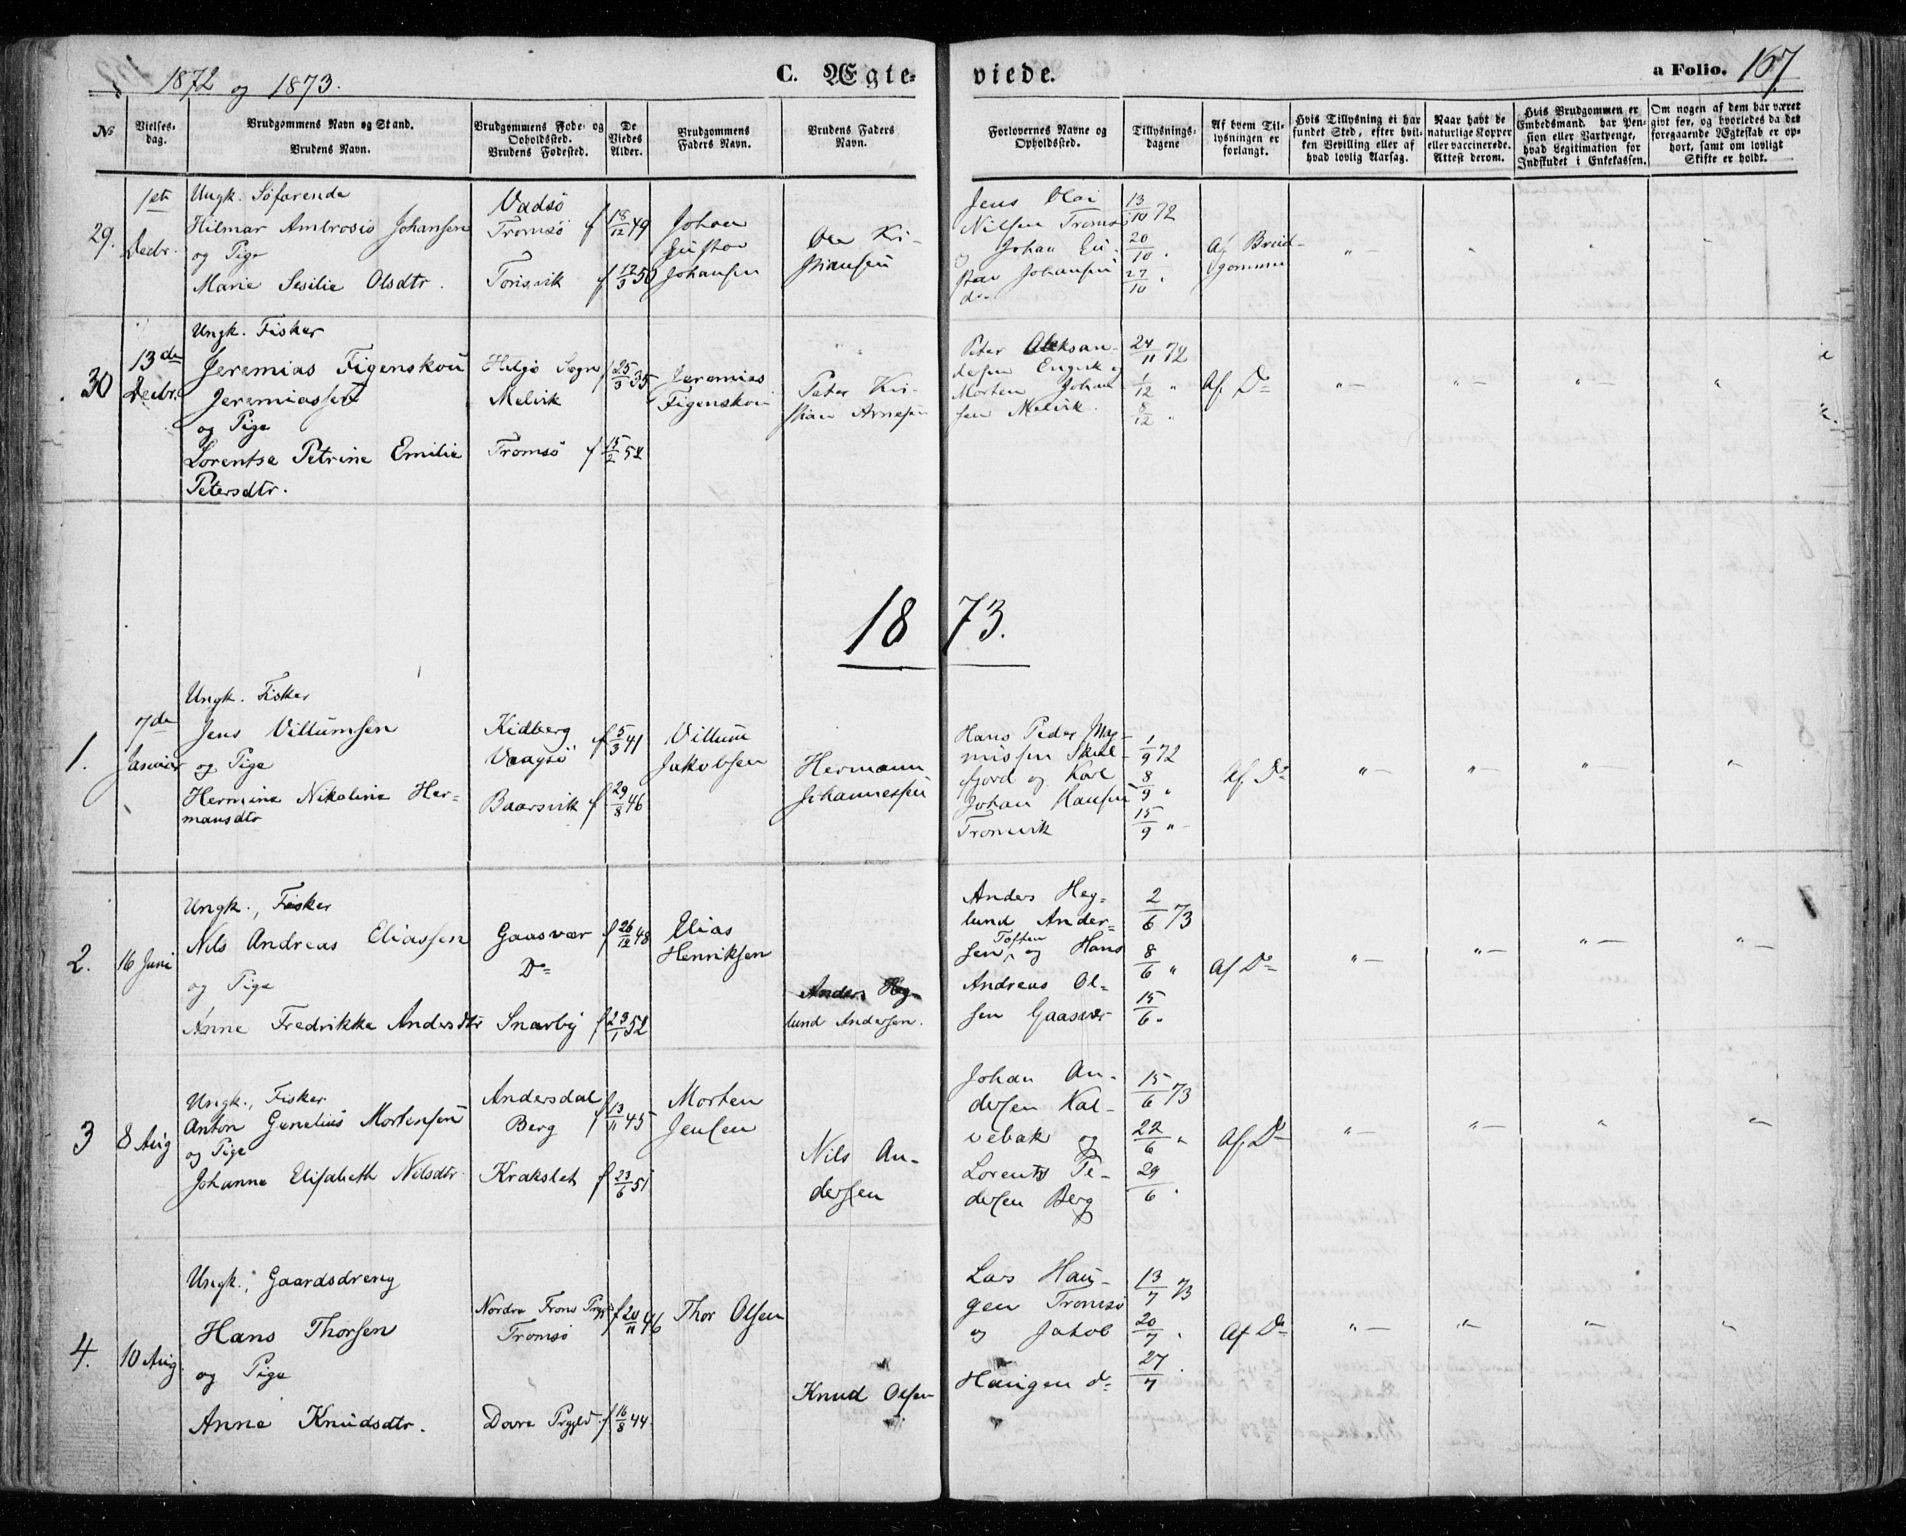 1872 og 1873.
C. Ægteviede.
a Folio. 167
No
Vielses-dag.
Brudgommens Navn og Stand.
Brudens Navn.
Brudgommens Føde- og Opholdssted.
Brudens Fødested.
De Viedes Alder.
Brudgommens Faders Navn.
Brudens Faders Navn.
Forlovernes Navne og Opholdssted.
Tillysnings-dagene
Af hvem Tillysningen er forlangt.
Hvis Tillysning ei har fundet Sted, efter hvilken Bevilling eller af hvad lovlig Aarsag.
Naar havt de naturlige Kopper eller vaccinerede. Attest derom.
Hvis Brudgommen er Embedsmand, har Pension eller Vartpenge, hvad Legitimation for Indskudet i Enkekassen.
Om nogen af dem har været givt før, og hvorledes da det foregaaende Ægteskab er ophørt, samt om lovligt Skifte er holdt.
29.
1ste
Decbr.
Ungk. Søfarende
Hilmar Ambrosio Johansen
og Pige
Marie Sesilie Olsdtr.
Vadsø
Tromsø
Tonsvik
f 18/12 49
f 12/3 50
Johan
Gustav
Johansen
Ole Ki-
stiansen
Jens Olai
Nilsen Tromsø
og Johan Gu-
stav Johansen
do
13/10 72
20/10 "
27/10 "
Af Brud-
gommen
"
30
13de
Decbr.
Ungk. Fisker
Jeremias Figenskou
Jeremiassen
og Pige
Lorentse Petrine Emilie
Petersdtr.
Helgø Sogn
Melvik
Tromsø
f 25/3 35
f 15/2 52
Jeremias
Figenskou
Peter Kri-
stian Arnesen
Peter Aleksan-
dersen Engvik og
Morten Johan
sen Melvik.
24/11 72
1/12 "
8/12 "
Af Do
"
1873.
1.
7de
Januar
Ungk. Fisker
Jens Villumsen
og Pige
Hermine Nikoline Her-
mansdtr
Kidberg
Vaagsø
Baarsvik
f 5/3 41
f 29/8 46
Villum
Jakobsen
Hermann
Johannessen
Hans Peder Mag-
nussen Skul-
fjord og Karl
Johan Hansen
Tromvik
1/9 72
8/9 "
15/9 "
Af Do
"
2.
16 Juni
Ungk., Fisker
Nils Andreas Eliassen
og Pige
Anne Fredrikke Andersdtr
Gaasvær
Do
Snarby
f 26/12 48
f 23/1 52
Elias
Henriksen
Anders Heg-
lund Andersen.
Anders Heg-
lund Ander-
sen Toften og Hans
Andreas Ol-
sen Gaasvær
2/6 73
8/6 "
15/6 "
Af Do
"
3
8 Aug
Ungk., Fisker
Anton Genelius Mortensen
og Pige
Johanna Elisabeth Nilsdtr.
Andersdal
Berg
Krakslet
f 13/11 45
f 23/6 51
Morten
Jensen
Nils An-
dersen
Johan An-
dersen Kal-
vebak og
Lorents Pe-
dersen Berg
15/6 73
22/6 "
29/6 "
Af Do
"
4.
10 Aug
Ungk., Gaardsdreng
Hans Thorsen
og Pige
Anne Knudsdtr.
Nordre Frons Prgjld
Tromsø
Dovre Prgjld.
f 20/11 46
f 16/8 44
Thor Olsen
Knud Olsen
Lars Hau-
gen Tromsø
og Jakob
Haugen do
13/7 73
20/7 "
27/7 "
Af Do
"